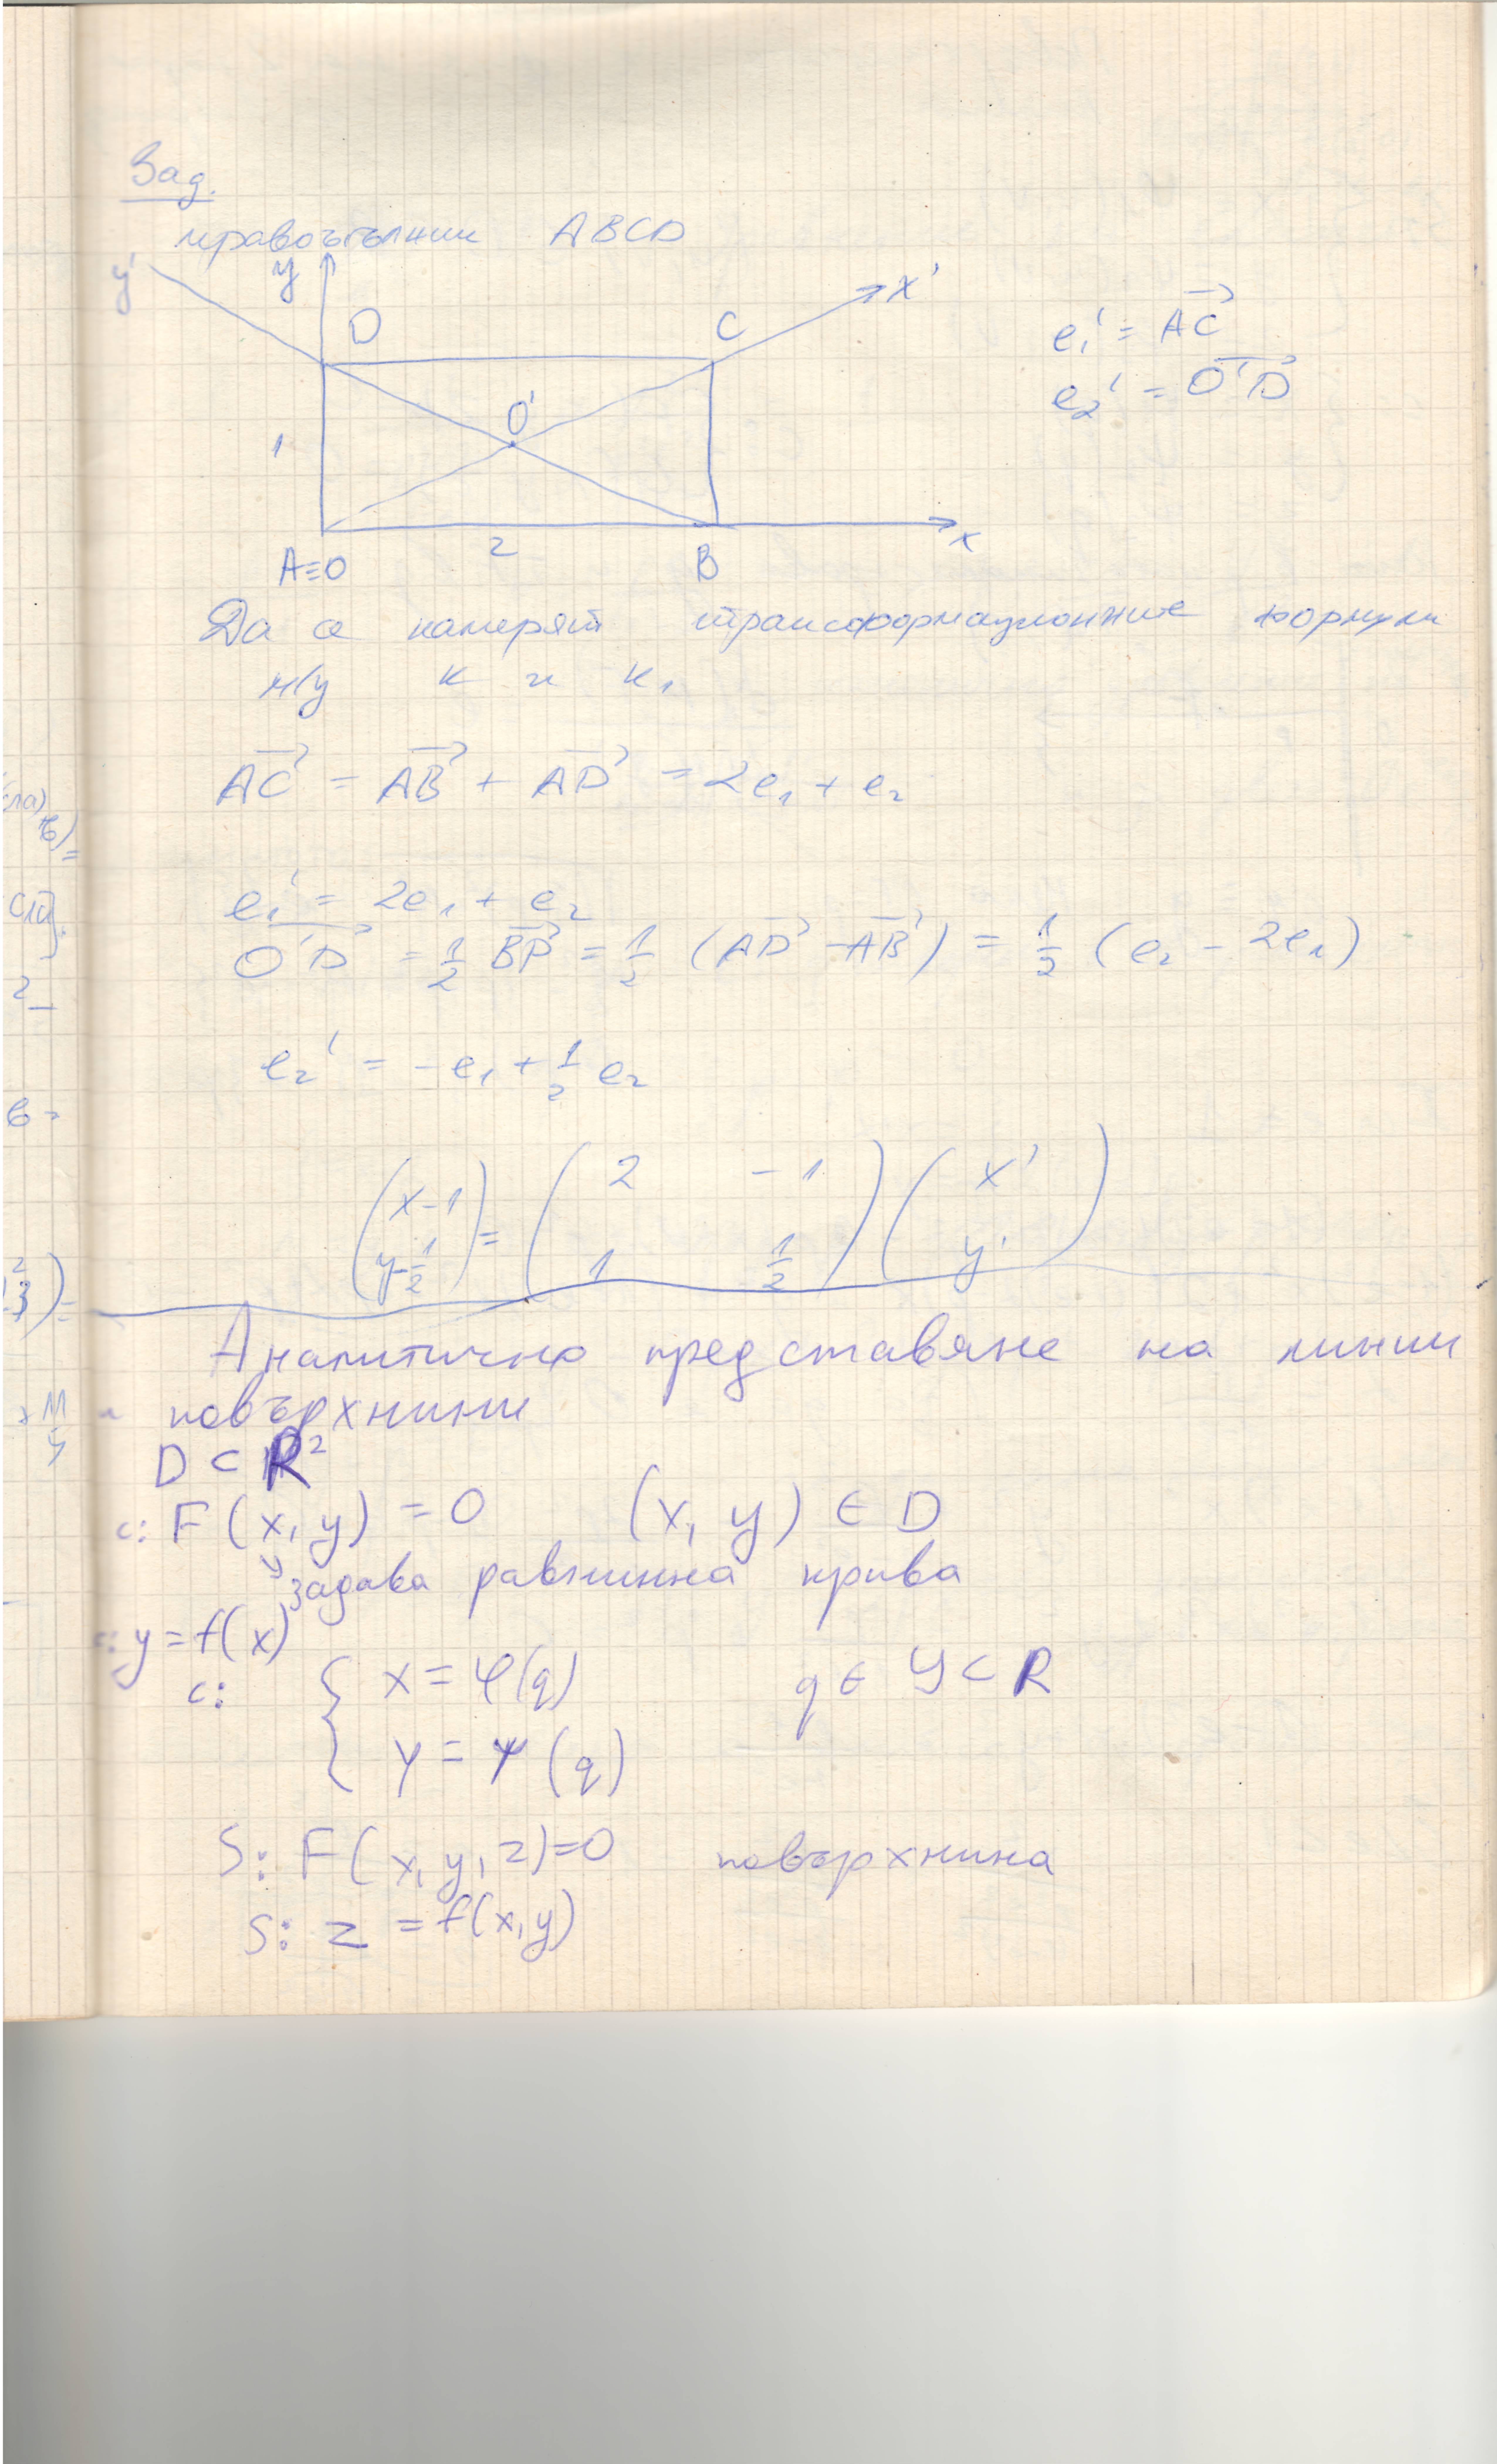 Зад.
правоъгълник ABCD
y' y D C x'
e₁' = AC→
e₂' = O'D→
O'
1
A≡O 2 B x
Да се намерят трансформационните формули
м/у K и K₁
AC→ = AB→ + AD→ = 2e₁ + e₂
e₁' = 2e₁ + e₂
O'D→ = 1/2 BD→ = 1/2 (AD→ - AB→) = 1/2 (e₂ - 2e₁)
e₂' = -e₁ + 1/2 e₂
(x-1 ; y-1/2) = (2 -1 ; 1 1/2) (x' ; y')
Аналитично представяне на линии
и повърхнини
D ⊂ R²
c: F(x, y) = 0 (x, y) ∈ D
задава равнинна крива
c: y = f(x)
c: { x = φ(q) q ∈ Y ⊂ R
y = ψ(q)
S: F(x, y, z) = 0 повърхнина
S: z = f(x, y)